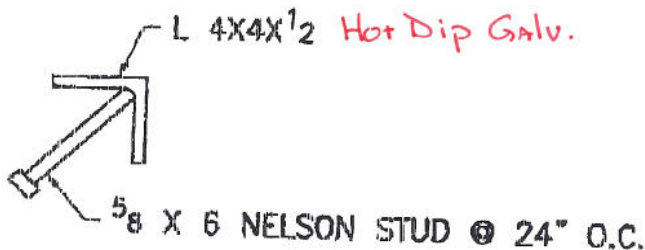 L 4X4X1/2 Hot Dip Galv.
5/8 X 6 NELSON STUD @ 24" O.C.